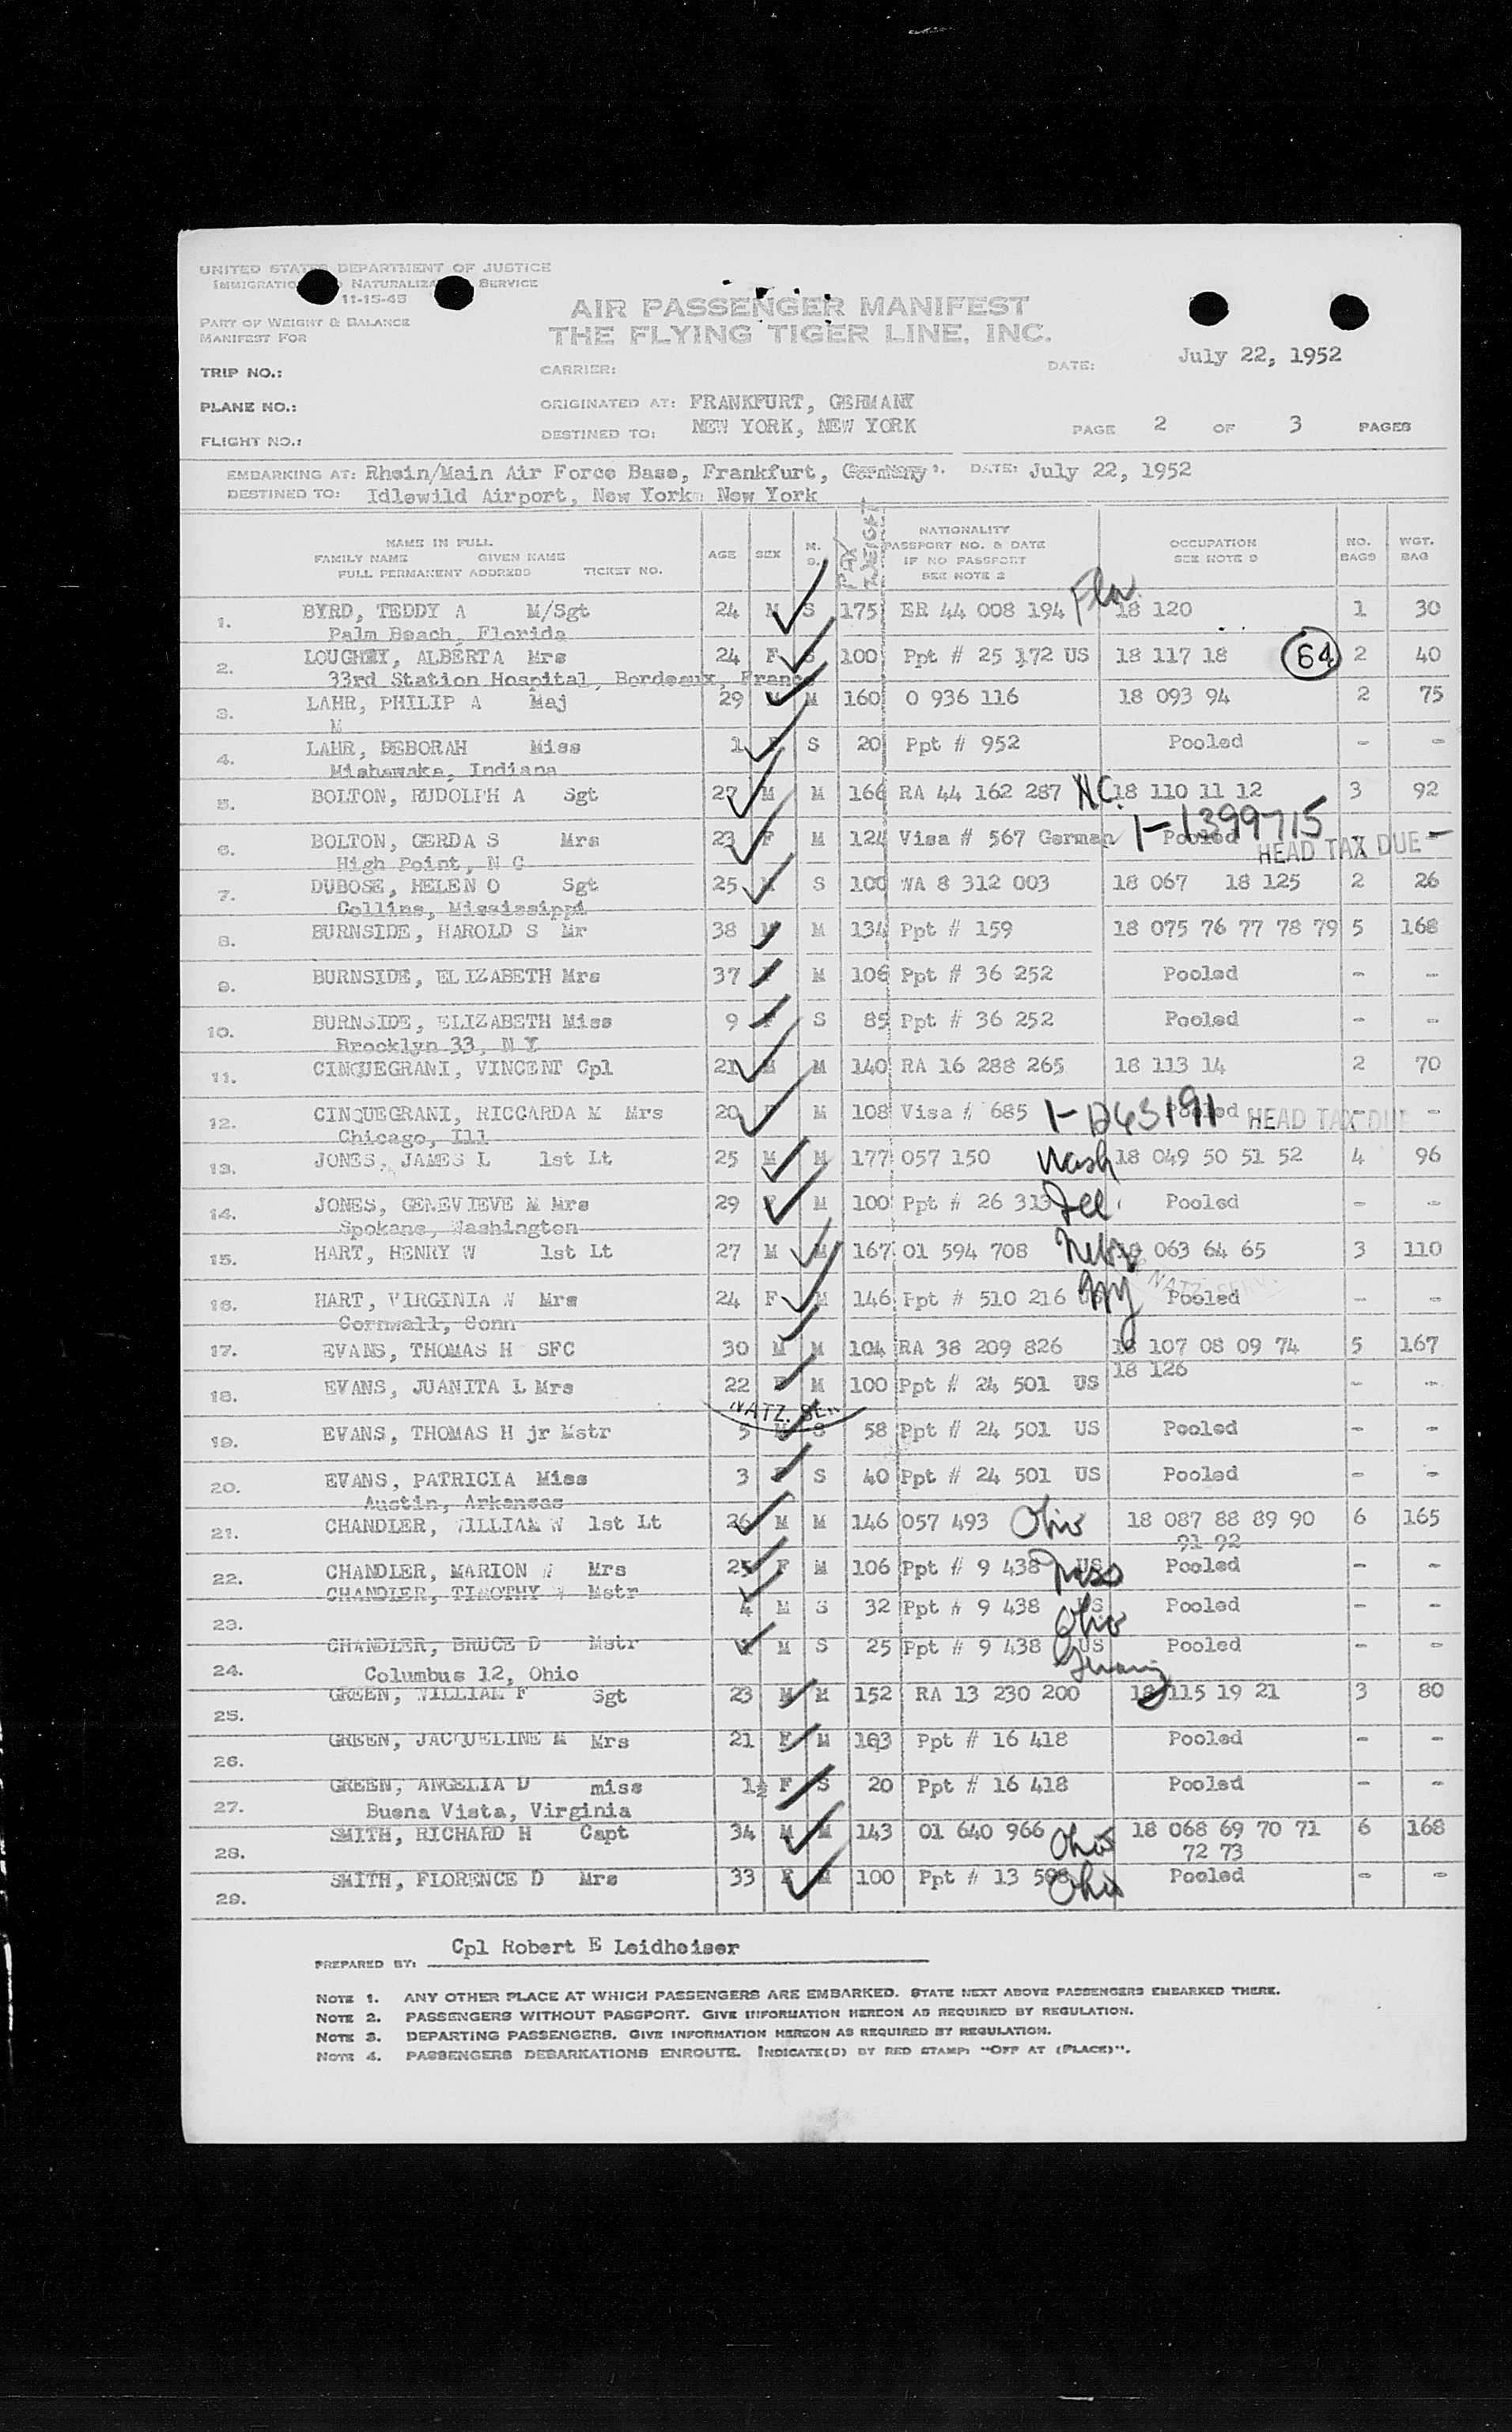 UNITED STATES DEPARTMENT OF JUSTICE
IMMIGRATION NATURALIZA SERVICE
11-15-45
PART OF WEIGHT & BALANCE
MANIFEST FOR
AIR PASSENGER MANIFEST
THE FLYING TIGER LINE, INC.
TRIP NO.: CARRIER: DATE: July 22, 1952
PLANE NO.: ORIGINATED AT: FRANKFURT, GERMANY
FLIGHT NO.: DESTINED TO: NEW YORK, NEW YORK PAGE 2 OF 3 PAGES
EMBARKING AT: Rhein/Main Air Force Base, Frankfurt, Germany DATE: July 22, 1952
DESTINED TO: Idlewild Airport, New York New York
NAME IN FULL
FAMILY NAME GIVEN NAME
FULL PERMANENT ADDRESS TICKET NO.
AGE SEX M. S. PAX WEIGHT
NATIONALITY
PASSPORT NO. & DATE
IF NO PASSPORT
SEE NOTE 2
OCCUPATION
SEE NOTE 9
NO. BAGS
WGT. BAG
1. BYRD, TEDDY A M/Sgt 24 M S 175 ER 44 008 194 Fla 18 120 1 30
Palm Beach, Florida
2. LOUGHEY, ALBERTA Mrs 24 F S 100 Ppt # 25 172 US 18 117 18 64 2 40
33rd Station Hospital, Bordeaux, France
3. LAHR, PHILIP A Maj 29 M M 160 O 936 116 18 093 94 2 75
M
4. LAHR, DEBORAH Miss 1 F S 20 Ppt # 952 Pooled - -
Mishawaka, Indiana
5. BOLTON, RUDOLPH A Sgt 27 M M 166 RA 44 162 287 N.C. 18 110 11 12 3 92
6. BOLTON, GERDA S Mrs 23 F M 124 Visa # 567 German 1-1399715 Pooled HEAD TAX DUE - -
High Point, N C
7. DUBOSE, HELEN O Sgt 25 S 100 WA 8 312 003 18 067 18 125 2 26
Collins, Mississippi
8. BURNSIDE, HAROLD S Mr 38 M M 134 Ppt # 159 18 075 76 77 78 79 5 168
9. BURNSIDE, ELIZABETH Mrs 37 F M 106 Ppt # 36 252 Pooled - -
10. BURNSIDE, ELIZABETH Miss 9 F S 85 Ppt # 36 252 Pooled - -
Brooklyn 33, N Y
11. CINQUEGRANI, VINCENT Cpl 21 M M 140 RA 16 288 265 18 113 14 2 70
12. CINQUEGRANI, RICCARDA M Mrs 20 F M 108 Visa # 685 1-1263191 Pooled HEAD TAX DUE - -
Chicago, Ill
13. JONES, JAMES L 1st Lt 25 M M 177 057 150 Wash 18 049 50 51 52 4 96
14. JONES, GENEVIEVE M Mrs 29 F M 100 Ppt # 26 313 Ill Pooled - -
Spokane, Washington
15. HART, HENRY W 1st Lt 27 M M 167 01 594 708 Nebr 18 063 64 65 3 110
16. HART, VIRGINIA W Mrs 24 F M 146 Ppt # 510 216 US NY Pooled - -
Cornwall, Conn
17. EVANS, THOMAS H SFC 30 M M 104 RA 38 209 826 18 107 08 09 74 5 167
18 126
18. EVANS, JUANITA L Mrs 22 F M 100 Ppt # 24 501 US - -
NATZ. SER
19. EVANS, THOMAS H jr Mstr 5 M S 58 Ppt # 24 501 US Pooled - -
20. EVANS, PATRICIA Miss 3 F S 40 Ppt # 24 501 US Pooled - -
Austin, Arkansas
21. CHANDLER, WILLIAM W 1st Lt 26 M M 146 057 493 Ohio 18 087 88 89 90 6 165
91 92
22. CHANDLER, MARION W Mrs 25 F M 106 Ppt # 9 438 US Pooled - -
23. CHANDLER, TIMOTHY W Mstr 4 M S 32 Ppt # 9 438 US Ohio Pooled - -
24. CHANDLER, BRUCE D Mstr M S 25 Ppt # 9 438 US Pooled - -
Columbus 12, Ohio
25. GREEN, WILLIAM F Sgt 23 M M 152 RA 13 230 200 18 115 19 21 3 80
26. GREEN, JACQUELINE M Mrs 21 F M 103 Ppt # 16 418 Pooled - -
27. GREEN, ANGELIA D miss 1½ F S 20 Ppt # 16 418 Pooled - -
Buena Vista, Virginia
28. SMITH, RICHARD H Capt 34 M M 143 01 640 966 Ohio 18 068 69 70 71 6 168
72 73
29. SMITH, FLORENCE D Mrs 33 F M 100 Ppt # 13 508 Ohio Pooled - -
PREPARED BY: Cpl Robert E Leidheiser
NOTE 1. ANY OTHER PLACE AT WHICH PASSENGERS ARE EMBARKED. STATE NEXT ABOVE PASSENGERS EMBARKED THERE.
NOTE 2. PASSENGERS WITHOUT PASSPORT. GIVE INFORMATION HEREON AS REQUIRED BY REGULATION.
NOTE 3. DEPARTING PASSENGERS. GIVE INFORMATION HEREON AS REQUIRED BY REGULATION.
NOTE 4. PASSENGERS DEBARKATIONS ENROUTE. INDICATE(D) BY RED STAMP: "OFF AT (PLACE)".